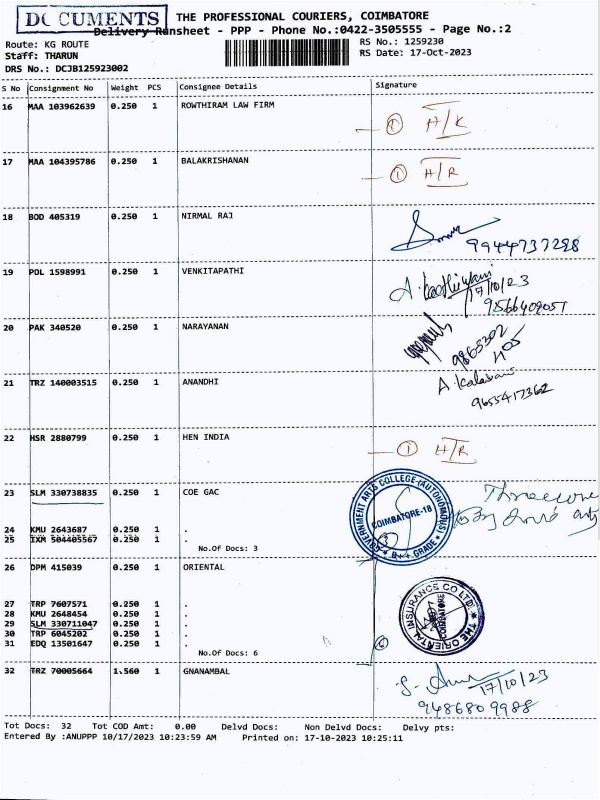 DOCUMENTS
THE PROFESSIONAL COURIERS, COIMBATORE
Delivery Runsheet - PPP - Phone No.:0422-3505555 - Page No.:2
Route: KG ROUTE
RS No.: 1259230
Staff: THARUN
RS Date: 17-Oct-2023
DRS No.: DCJB125923002
S No Consignment No Weight PCS Consignee Details Signature
16 MAA 103962639 0.250 1 ROWTHIRAM LAW FIRM
① H/K
17 MAA 104395786 0.250 1 BALAKRISHANAN
① H/R
18 BOD 405319 0.250 1 NIRMAL RAJ
9944737288
19 POL 1598991 0.250 1 VENKITAPATHI
17/10/23
9566409057
20 PAK 340520 0.250 1 NARAYANAN
9865302
405
21 TRZ 140003515 0.250 1 ANANDHI
A. Kalavani
9655417362
22 HSR 2880799 0.250 1 HEN INDIA
① H/R
23 SLM 330738835 0.250 1 COE GAC
GOVERNMENT ARTS COLLEGE (AUTONOMOUS)
COIMBATORE-18
B++ GRADE
③
24 KMU 2643687 0.250 1 .
25 IXM 504405567 0.250 1 .
No.Of Docs: 3
26 DPM 415039 0.250 1 ORIENTAL
THE ORIENTAL INSURANCE CO LTD.
COIMBATORE
27 TRP 7607571 0.250 1 .
28 KMU 2648454 0.250 1 .
29 SLM 330711047 0.250 1 .
30 TRP 6045202 0.250 1 .
31 EDQ 13501647 0.250 1 .
⑥
No.Of Docs: 6
32 TRZ 70005664 1.560 1 GNANAMBAL
17/10/23
9486809988
Tot Docs: 32 Tot COD Amt: 0.00 Delvd Docs: Non Delvd Docs: Delvy pts:
Entered By :ANUPPP 10/17/2023 10:23:59 AM Printed on: 17-10-2023 10:25:11